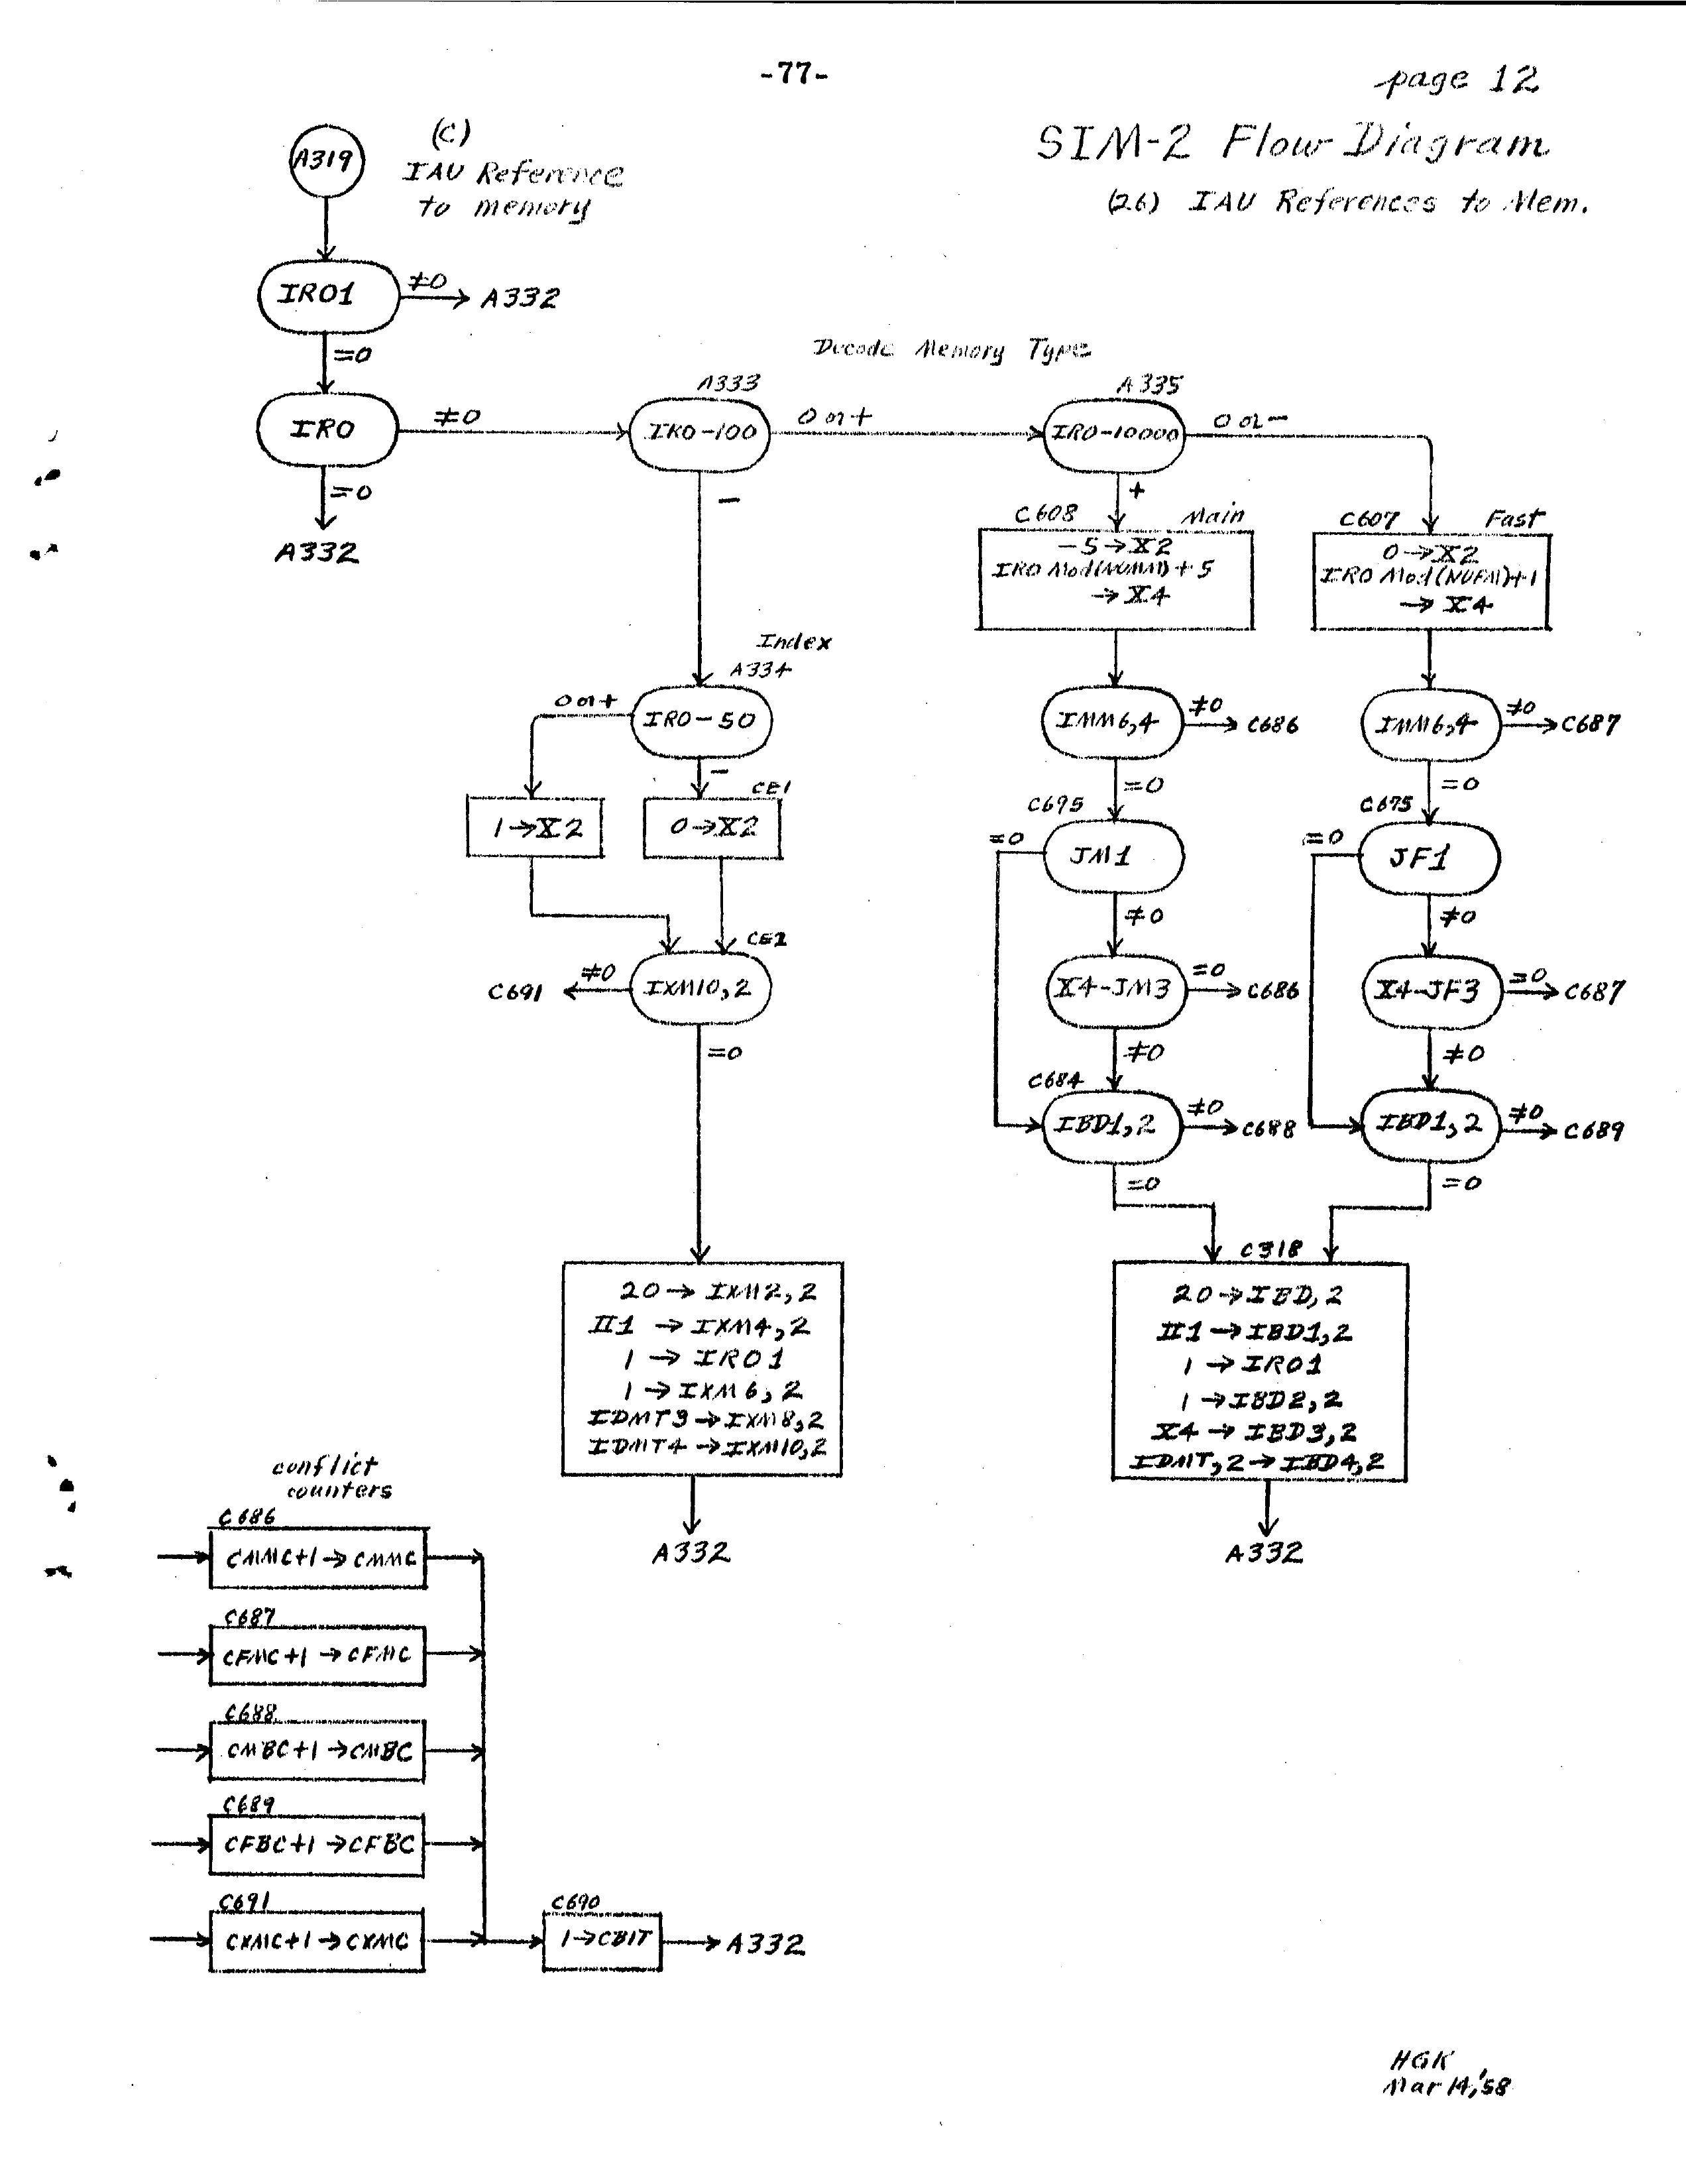 -77-
page 12
SIM-2 Flow Diagram
(26) IAU References to Mem.
A319
(C)
IAU Reference
to memory
IRO1
≠0
A332
=0
IRO
≠0
=0
A332
Decode Memory Type
A333
IRO-100
0 or +
-
A335
IRO-10000
0 or -
+
C608 Main
-5→X2
IRO Mod(NUMM)+5
→X4
C607 Fast
0→X2
IRO Mod(NUFM)+1
→X4
Index
A334
IRO-50
0 or +
-
1→X2
CE1
0→X2
CE2
IXM10,2
≠0
C691
=0
IMM6,4
≠0
C686
=0
C695
JM1
=0
≠0
X4-JM3
=0
C686
≠0
C684
IBD1,2
≠0
C688
=0
IMM6,4
≠0
C687
=0
C675
JF1
=0
≠0
X4-JF3
=0
C687
≠0
IBD1,2
≠0
C689
=0
20→IXM2,2
II1→IXM4,2
1→IRO1
1→IXM6,2
IDMT3→IXM8,2
IDMT4→IXM10,2
A332
C318
20→IBD,2
II1→IBD1,2
1→IRO1
1→IBD2,2
X4→IBD3,2
IDMT,2→IBD4,2
A332
conflict
counters
C686
CMMC+1→CMMC
C687
CFMC+1→CFMC
C688
CMBC+1→CMBC
C689
CFBC+1→CFBC
C691
CXMC+1→CXMC
C690
1→CBIT
A332
HGK
Mar 14,'58